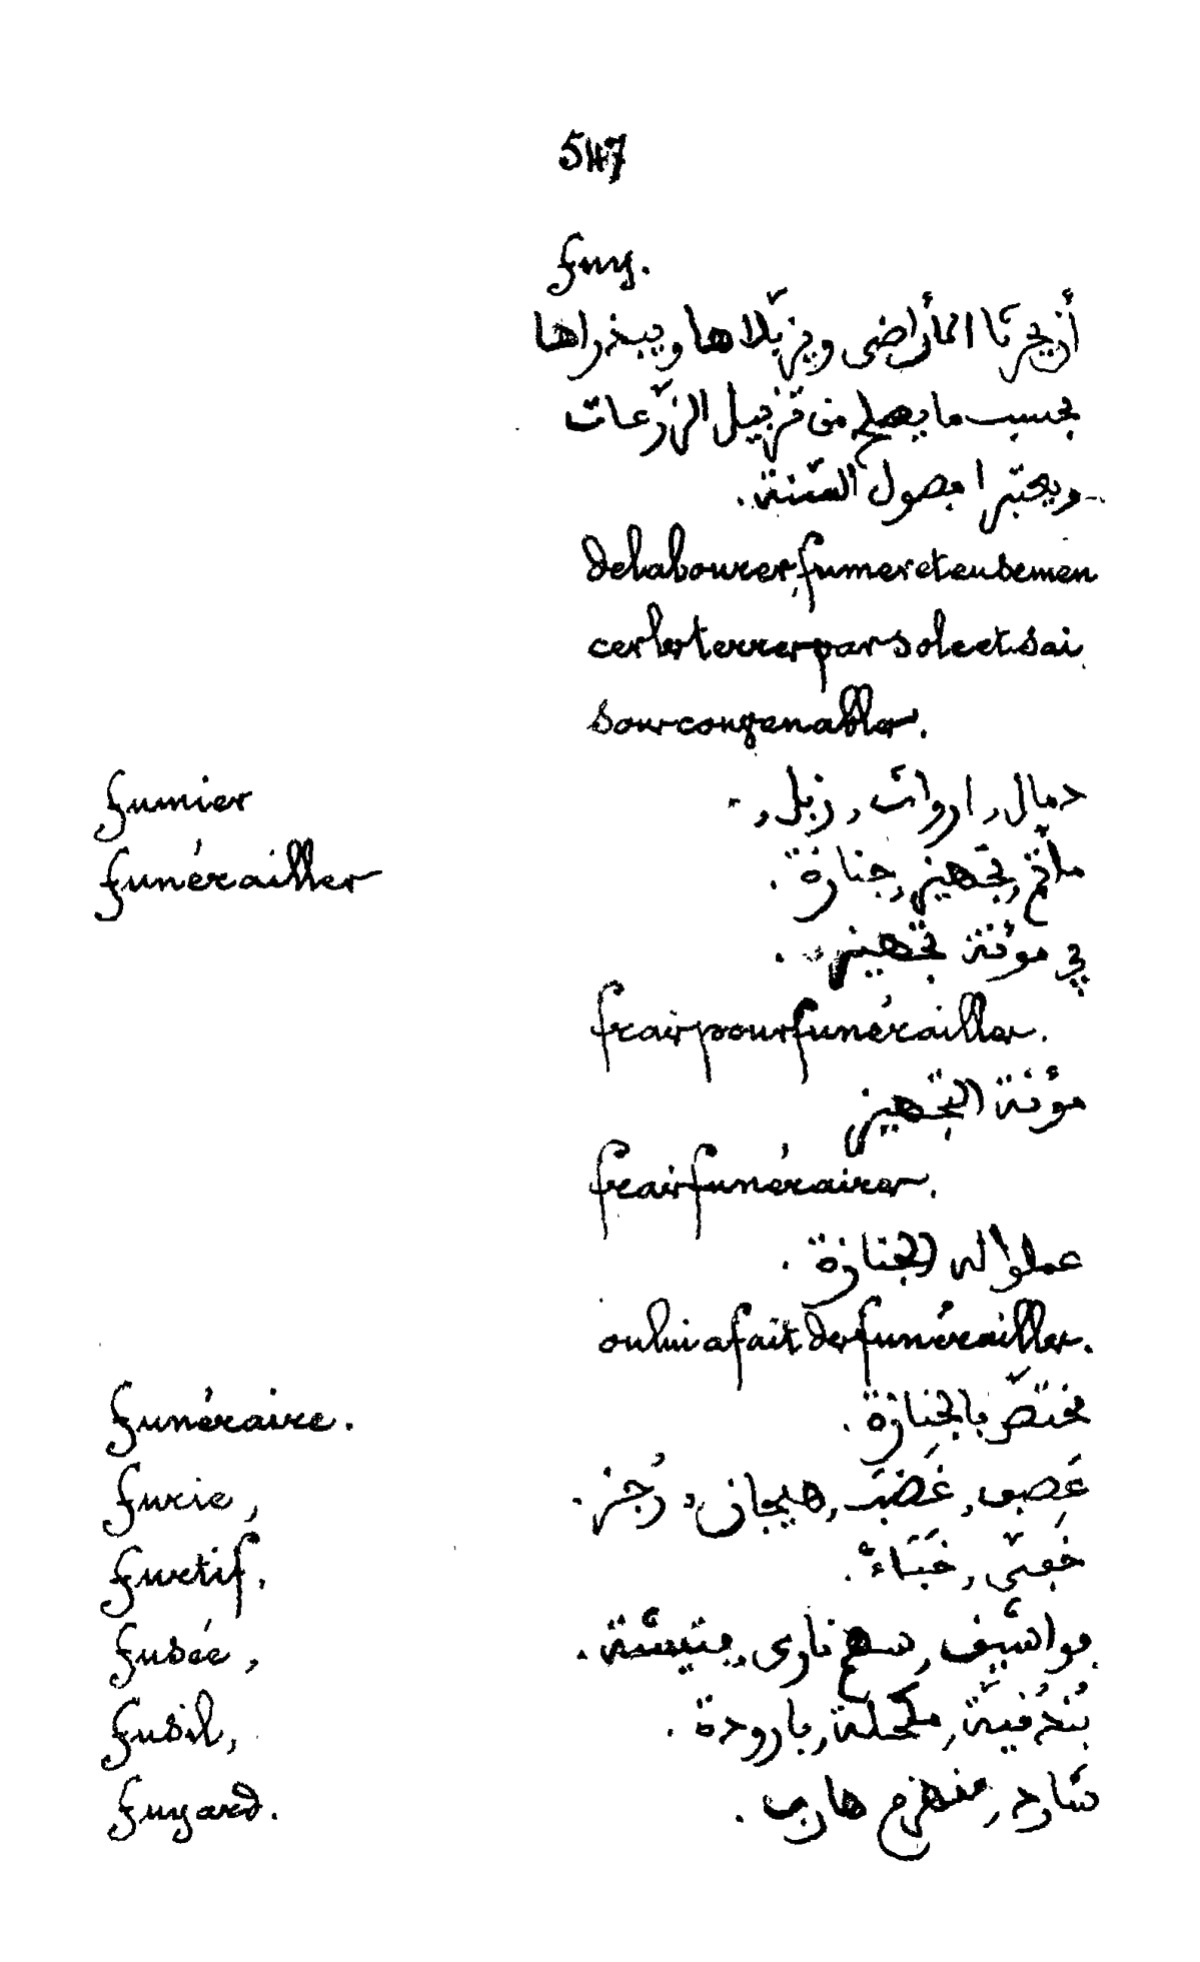 547
fuy.
أن يحرتا الأراضى ويزبّلاها ويبذراها
بحسب ما يصلح من تزبيل الزّرعات
ويعتبرا بصول السّنة.
de labourer, fumer et ensemen
cer les terres par sole et sai
sons congenables.
fumier دمال, اروات, زبل,
funérailles مأتم, تجهيز, جنازة.
في مؤنة تجهيز.
frais pour funérailles.
مؤنة التجهيز
frais funéraires.
عملوا له الجنازة.
on lui a fait des funérailles.
funéraire. مختصّ بالجنازة.
furie, غضب, هيجان, رُجز.
furtif. خفىّ, خبَاء.
fusée, سهم نارى
fusil, بُندُقيّة, مكحلة, بارودة.
fuyard. شارد, منهزم, هارب.